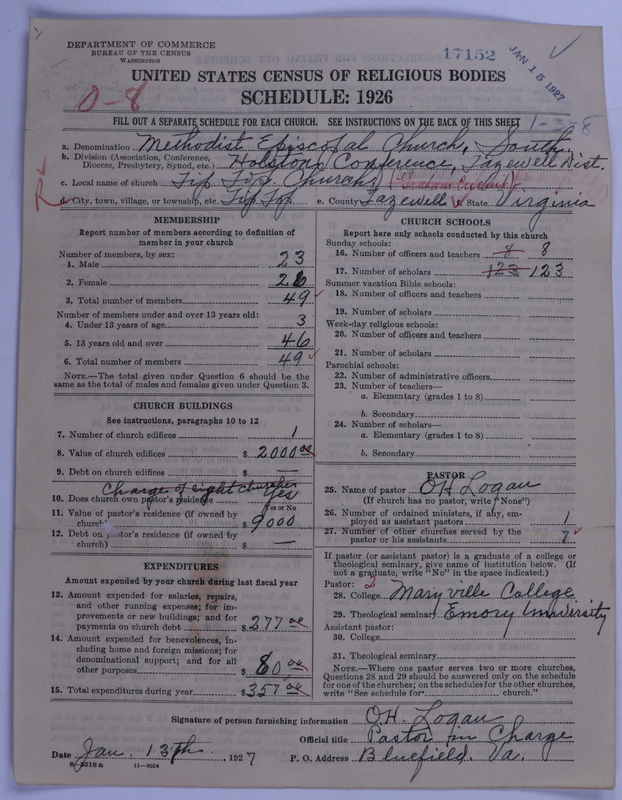 DEPARTMENT OF COMMERCE
BUREAU OF THE CENSUS
WASHINGTON
17152
JAN 15 1927
UNITED STATES CENSUS OF RELIGIOUS BODIES
SCHEDULE: 1926
0-8
FILL OUT A SEPARATE SCHEDULE FOR EACH CHURCH. SEE INSTRUCTIONS ON THE BACK OF THIS SHEET
1-2-8
a. Denomination Methodist Episcopal Church, South.
b. Division (Association, Conference, Diocese, Presbytery, Synod, etc.) Holston Conference, Tazewell Dist.
c. Local name of church Tip Top Church (Graham Circuit)
d. City, town, village, or township, etc. Tip Top e. County Tazewell State Virginia
MEMBERSHIP
Report number of members according to definition of
member in your church
Number of members, by sex:
1. Male 23
2. Female 26
3. Total number of members 49
Number of members under and over 13 years old:
4. Under 13 years of age 3
5. 13 years old and over 46
6. Total number of members 49
NOTE.—The total given under Question 6 should be the
same as the total of males and females given under Question 3.
CHURCH BUILDINGS
See instructions, paragraphs 10 to 12
7. Number of church edifices 1
8. Value of church edifices $ 2000 00
9. Debt on church edifices $ —
Charge of eight churches
10. Does church own pastor's residence Yes
Yes or No
11. Value of pastor's residence (if owned by
church) $ 9000
12. Debt on pastor's residence (if owned by
church) $ —
EXPENDITURES
Amount expended by your church during last fiscal year
13. Amount expended for salaries, repairs,
and other running expenses; for im-
provements or new buildings; and for
payments on church debt $ 277 00
14. Amount expended for benevolences, in-
cluding home and foreign missions; for
denominational support; and for all
other purposes $ 80 00
15. Total expenditures during year $ 357 00
CHURCH SCHOOLS
Report here only schools conducted by this church
Sunday schools:
16. Number of officers and teachers 8 8
17. Number of scholars 123 123
Summer vacation Bible schools:
18. Number of officers and teachers
19. Number of scholars
Week-day religious schools:
20. Number of officers and teachers
21. Number of scholars
Parochial schools:
22. Number of administrative officers
23. Number of teachers—
a. Elementary (grades 1 to 8)
b. Secondary
24. Number of scholars—
a. Elementary (grades 1 to 8)
b. Secondary
PASTOR
25. Name of pastor OH Logan
(If church has no pastor, write "None")
26. Number of ordained ministers, if any, em-
ployed as assistant pastors 1
27. Number of other churches served by the
pastor or his assistants 7
If pastor (or assistant pastor) is a graduate of a college or
theological seminary, give name of institution below. (If
not a graduate, write "No" in the space indicated.)
Pastor: 2
28. College Maryville College
29. Theological seminary Emory University
Assistant pastor:
30. College
31. Theological seminary
NOTE.—Where one pastor serves two or more churches,
Questions 28 and 29 should be answered only on the schedule
for one of the churches; on the schedules for the other churches,
write "See schedule for* church."
Signature of person furnishing information O.H. Logan
Official title Pastor in Charge
Date Jan. 13th, 1927 P. O. Address Bluefield, Va.
8-5518a 11-9554